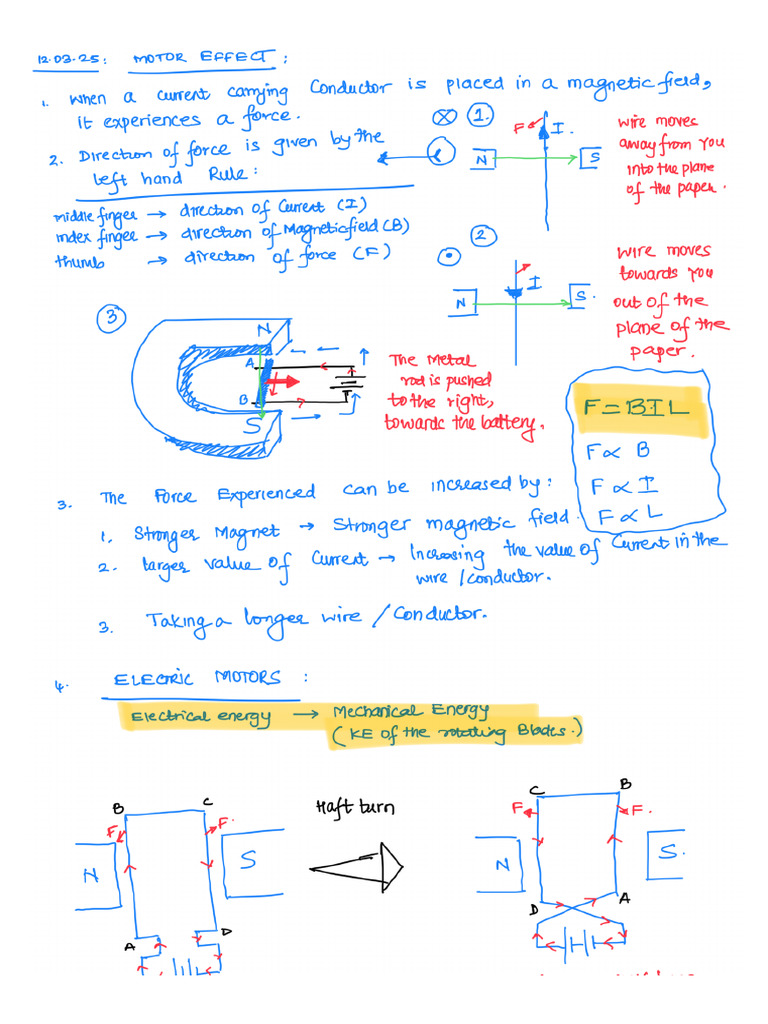 12.03.25: MOTOR EFFECT:
1. When a current carrying Conductor is placed in a magnetic field,
it experiences a force.
2. Direction of force is given by the
left hand Rule:
middle finger → direction of Current (I)
index finger → direction of Magnetic field (B)
thumb → direction of force (F)
1.
F
I.
N
S
wire moves
away from you
into the plane
of the paper.
2
I
N
S.
wire moves
towards you
out of the
plane of the
paper.
3
N
A
B
S
The Metal
rod is pushed
to the right,
towards the battery.
F = BIL
F ∝ B
F ∝ I
F ∝ L
3. The Force Experienced can be increased by:
1. Stronger Magnet → Stronger magnetic field.
2. larger value of Current → Increasing the value of Current in the
wire / conductor.
3. Taking a longer wire / Conductor.
4. ELECTRIC MOTORS:
Electrical energy → Mechanical Energy
(KE of the rotating Blades.)
B
C
F
F.
N
S
A
D
Half turn
C
B
F
F.
N
S.
D
A